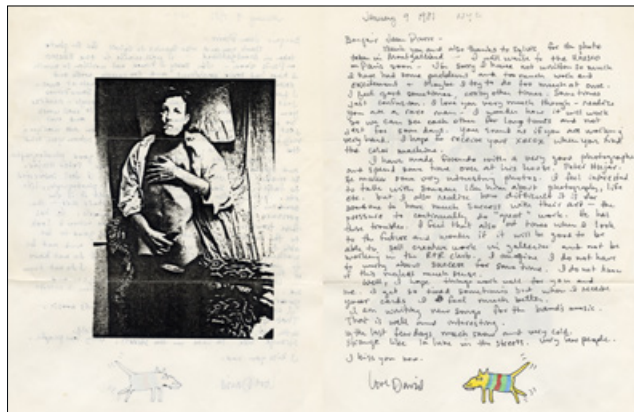 January 9 1981 NYC
Bonjour Jean Pierre
Thank you and also thanks to Sylvie for the photo
taken in Montgailland - I will write to the
Paris soon - I'm sorry I have not written so much
I have had some problems and too much work and
excitement - Maybe I try to do too much at once.
I feel good sometimes, weary other times. Sometimes
just confusion. I love you very much though - realize
you are a rare man - I wonder how it will work
so we can see each other for long times and not
just for some days. You sound as if you are working
very hard. I hope to receive your xerox when you find
the color machine.
I have made friends with a very good photographer
and spend some time over at his home. Peter Hujar.
He makes some very interesting photos. I feel
to talk with someone like him about photography, life
etc. but I also realize how difficult it is for
someone to have much success with their art - the
pressure to continually do "great" work. He has
these troubles. I feel that also at times when I look
to the future and wonder if it will be good to be
able to sell creative work in galleries and not be
working in the club. I imagine I do not have
to worry about success for some time. I do not know
if this makes much sense.
Well, I hope things work well for you and
me. I get so tired sometimes but when I receive
your cards I feel much better.
I am writing new songs for the band's music.
That is well and interesting.
In the last few days much snow and very cold.
strange like in the streets. Very less people.
I kiss you now.
Love David